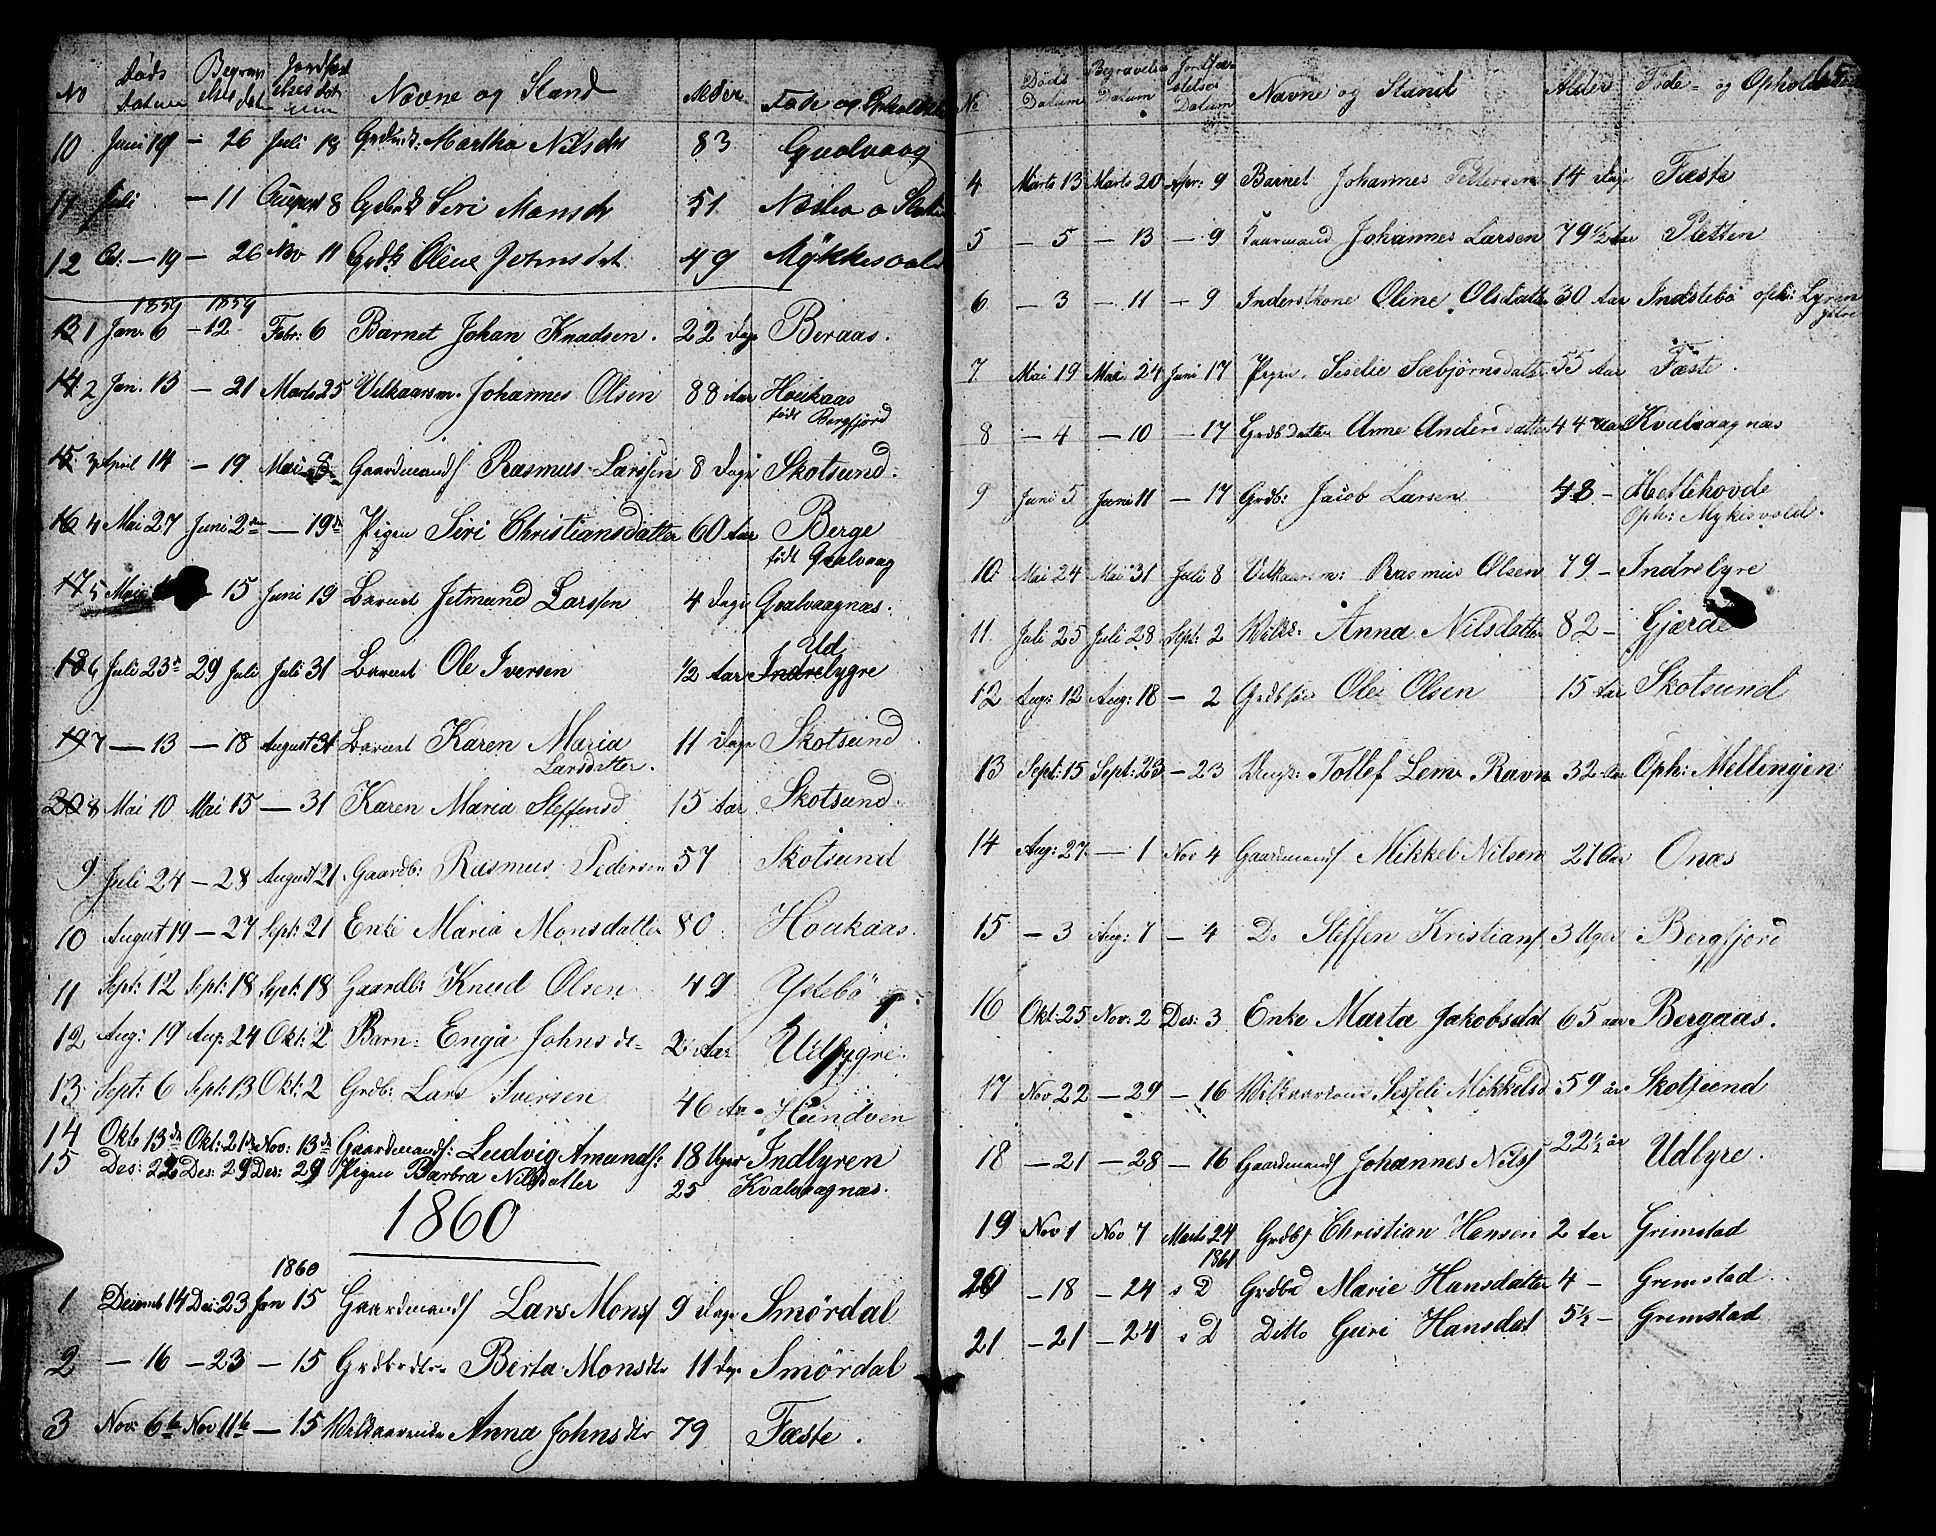 No Døds Datum Begrav elses dat Jordfæst elses dat um Navne og Stand Alder Føde og Opholdsst
10 Juni 19 — 26 Juli 18 Martha Nilsdtr 83 Gvalvaag
11 Juli — 11 August 8 Siri Monsdtr 51
12 Oct: — 19 — 26 Nov 11 Olene Jetmsdat 49 Mykkesvold
1859 1859
13 1 Jan. 6 — 12 Febr: 6 Barnet Johan Knudsen. 22 Dage Beraas.
14 2 Jan. 13 — 21 Marts 25 Vilkaarsm. Johannes Olsen 88 Aar Houkaas
født Bergfjord
15 3 April 14 — 19 Mai 8 Gaardmands Rasmus Larssen 8 Dage Skotsund.
16 4 Mai 27 Juni 2den — 19de Pigen Siri Christiansdatter 60 Aar Berge
født Gvalvaag
17 5 Mai 15 Juni 19 Barnet Jetmund Larssen 4 Dage Gvalvaagnæs.
Ud
18 6 Juli 23de 29 Juli Juli 31 Barnet Ole Iversen 1/2 Aar Indrebygre
19 7 — 13 — 18 August 31 Barnet Karen Maria 11 Dage Skotsund
Larsdatter.
20 8 Mai 10 Mai 15 — 31 Karen Maria Steffensd 15 Aar Skotsund.
9 Juli 24 — 28 August 21 Gaardb: Rasmus Pedersen 57 Skotsund
10 August 19 — 27 Sept: 21 Enke Maria Monsdatter 80 Houkaas.
11 Sept: 12 Sept: 18 Sept: 18 Gaardb: Knud Olsen 49 Ystebö
12 Aug: 19 Aug: 24 Okt: 2 Barn: Enga Johnsdt 2 Aar Utbygre.
13 Sept: 6 Sept: 13 Okt: 2 Grdb: Lars Iversen 46 Aar Heindven
14 Okto 13de Okt: 21de Nov: 13de Gaardmands: Ludvig Amunds: 18 Uger Indbyren
15 Des: 22 Des: 29 Des: 29 Pigen Barbra Nilsdatter 25 Kvalvaagnæs.
1860
1860
1 Decemb 14 Dec: 23 Jan 15 Gaardmands Lars Mons 9 Dage Smördal
2 — 16 — 23 — 15 Grdbrdtr Berta Monsdtr 11 Dage Smördal
3 Nov: 6te Nov 11te — 15 Vilkaarenke Anna Johnsdtr 79 Fæste.
No Døds Datum Begravelses Datum Jordfæstelses Datum Navne og Stand Alder Føde- og Opholdssted
4 Marts 13 Marts 20 Apr: 9 Barnet Johannes Pettersen 14 Dage Fæste
5 — 5 — 13 — 9 Kaarmand Johannes Larsen 79 1/2 Aar Pletten
6 — 3 — 11 — 9 Inderstkone Oline Olsdatter 30 Aar Indstebö oph: Lyren
7 Mai 19 Mai 24 Juni 17 Pigen. Siselie Sæbjörnsdatter 55 Aar Fæste.
8 — 4 — 10 — 17 Grdbdatter Anne Andersdatter 44 Aar Kvalvaagnæs
9 Juni 5 Juni 11 — 17 Grdb: Jacob Larsen 48 — Hetlehovde
Oph: Mykisvold.
10 Mai 24 Mai 31 Juli 8 Vilkaarsm: Rasmus Olsen 79 — Indrebyre
11 Juli 25 Juli 28 Sept: 2 Vilkk: Anna Nilsdatter 82 — Gjærde
12 Aug: 12 Aug: 18 — 2 Ole Olsen 15 Aar Skotsund
13 Sept: 15 Sept: 23 — 23 Tollef Lem Ravn 32 Aar Oph: Mellingen
14 Aug: 27 — 1 Nov 4 Gaardmands Mikkel Nilsen 21 Aar Onæs
15 — 3 Aug: 7 — 4 Do Steffen Kristians 3 Uger Bergfjord
16 Okt: 25 Nov: 2 Des: 3 Enke Marta Jakobsdat 65 aar Bergaas.
17 Nov 22 — 29 — 16 Vilkaarkone Sesseli Mikkelsd 59 år Skotsund
18 — 21 — 28 — 16 Gaardmands Johannes Nils 22 1/2 år Udbyre.
19 Nov 1 Nov 7 Marts 24 Grdbs Christian Hansen 2 Aar Grimstad
1861
20 — 18 — 24 s D Grdbd Marie Hansdatter 4 — Gremstad
21 — 21 — 24 s D Ditto Guri Hansdat 5 1/2 — Gremstad